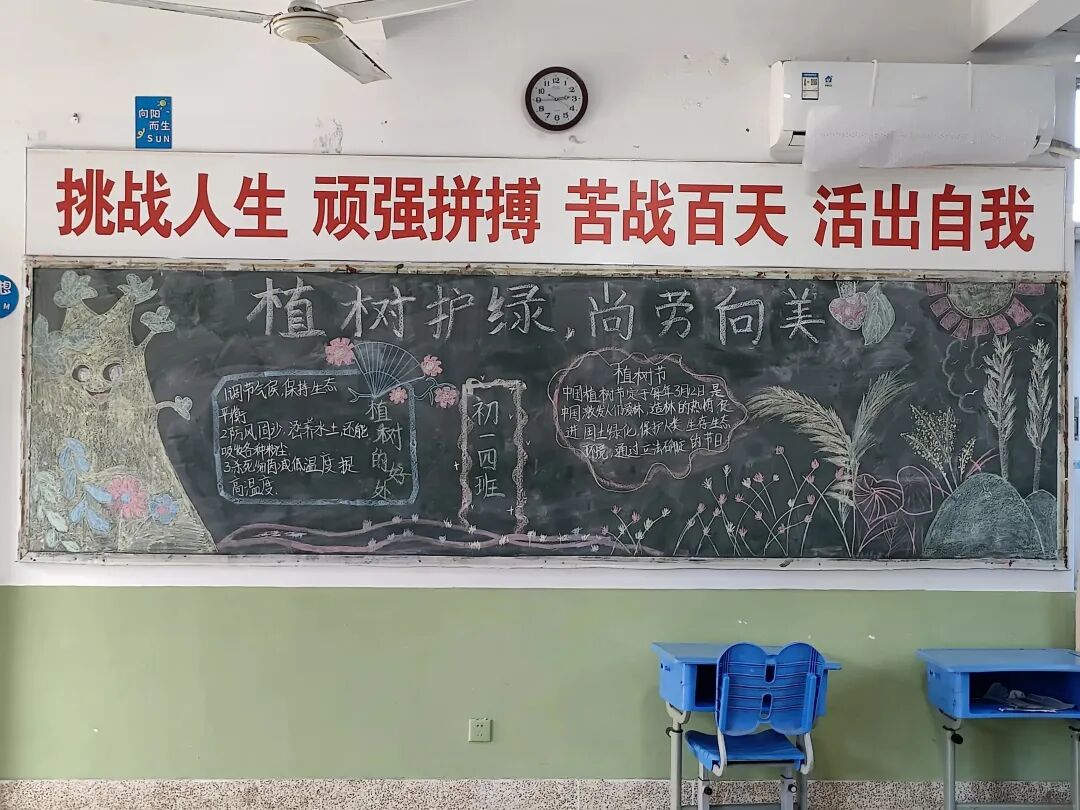 向阳
而生
SUN
挑战人生 顽强拼搏 苦战百天 活出自我
想
植树护绿,尚劳向美
1调节气候,保持生态
平衡
2防风固沙,涵养水土还能
吸收各种粉尘
3杀死细菌减低温度提
高湿度
植树的好处
初二四班
植树节
中国植树节定于每年3月12日是
中国激发人们爱林、造林的热情促
进国土绿化,保护人类生存生态
环境,通过立法确定的节日